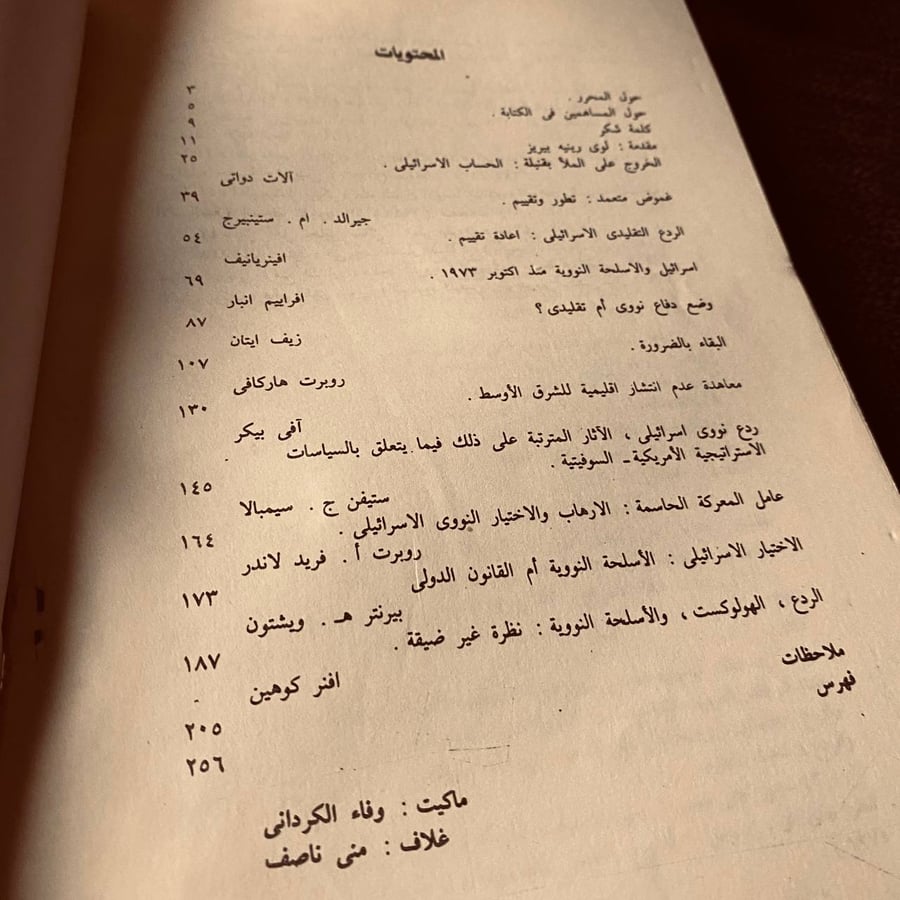 المحتويات
حول المحرر . ٣
حول المساهمين فى الكتابة . ٥
كلمة شكر ٩
مقدمة : لوى رينيه بيريز ١١
الخروج على الملأ بقنبلة : الحساب الاسرائيلى . ٢٥
آلات دواتى
غموض متعمد : تطور وتقييم . ٣٩
جيرالد . ام . ستينبيرج
الردع التقليدى الاسرائيلى : اعادة تقييم . ٥٤
افينريانيف
اسرائيل والاسلحة النووية منذ اكتوبر ١٩٧٣ . ٦٩
افراييم انبار
وضع دفاع نووى أم تقليدى ؟ ٨٧
زيف ايتان
البقاء بالضرورة . ١٠٧
روبرت هاركافى
معاهدة عدم انتشار اقليمية للشرق الأوسط . ١٣٠
آفى بيكر
ردع نووى اسرائيلى ، الآثار المترتبة على ذلك فيما يتعلق بالسياسات
الاستراتيجية الأمريكية - السوفيتية . ١٤٥
ستيفن ج . سيمبالا
عامل المعركة الحاسمة : الارهاب والاختيار النووى الاسرائيلى . ١٦٤
روبرت أ . فريد لاندر
الاختيار الاسرائيلى : الأسلحة النووية أم القانون الدولى ١٧٣
بيرنتر هـ . ويشتون
الردع ، الهولوكست ، والأسلحة النووية : نظرة غير ضيقة . ١٨٧
افنر كوهين
ملاحظات ٢٠٥
فهرس ٢٥٦
ماكيت : وفاء الكردانى
غلاف : منى ناصف